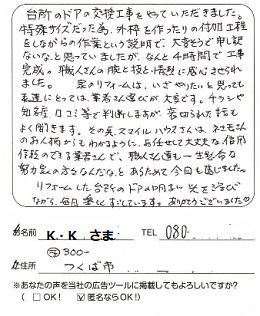 台所のドアの交換工事をやっていただきました。
特殊サイズだった為、外枠を作ったりの付加工程
をしながらの作業という説明で、大変そうで申し訳
ないな、と思っていましたが、なんと4時間で工事
完成。職人さんの腕と技と情熱に感心させられ
ました。 家のリフォームは、いざやりたいと思っても
素人にとっては、業者さん選びが大変です。チラシや
知名度、口コミ等で判断しますが、裏切られた話も
よく聞きます。その点、スマイルハウスさんは、社長さん
のお人柄からもわかるように、お任せして大丈夫な、信用
信頼のできる業者さんで、職人さん達も一生懸命な
努力家の方々なんだな、とあらためて今回も感じました。
リフォームした台所のドアの明るい光を浴び
ながら、毎日楽しくすごしています。ありがとうございました
お名前 K・K さま TEL 080-
〒300-
ご住所 つくば市
※あなたの声を当社の広告ツールに掲載してもよろしいですか?
( □ OK! ☑ 匿名ならOK!)